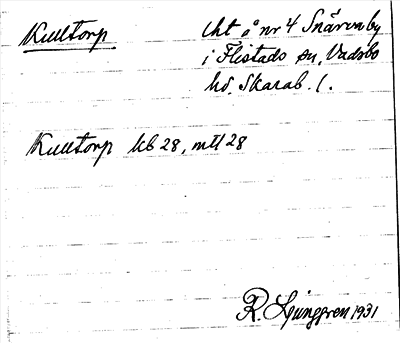 Kulltorp
lht å nr 4 Snärvaby
i Flistads sn, Vadsbo
hd, Skarab. l.
Kulltorp kb 28, mtl 28
R. Ljunggren 1931